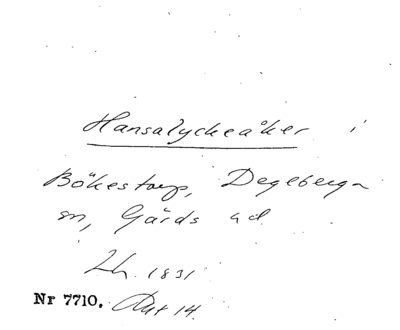 Hansalyckeåker i
Bökestorp, Degeberga
sn, Gärds hd
Lh. 1831
Nr 7710. Akt 14.